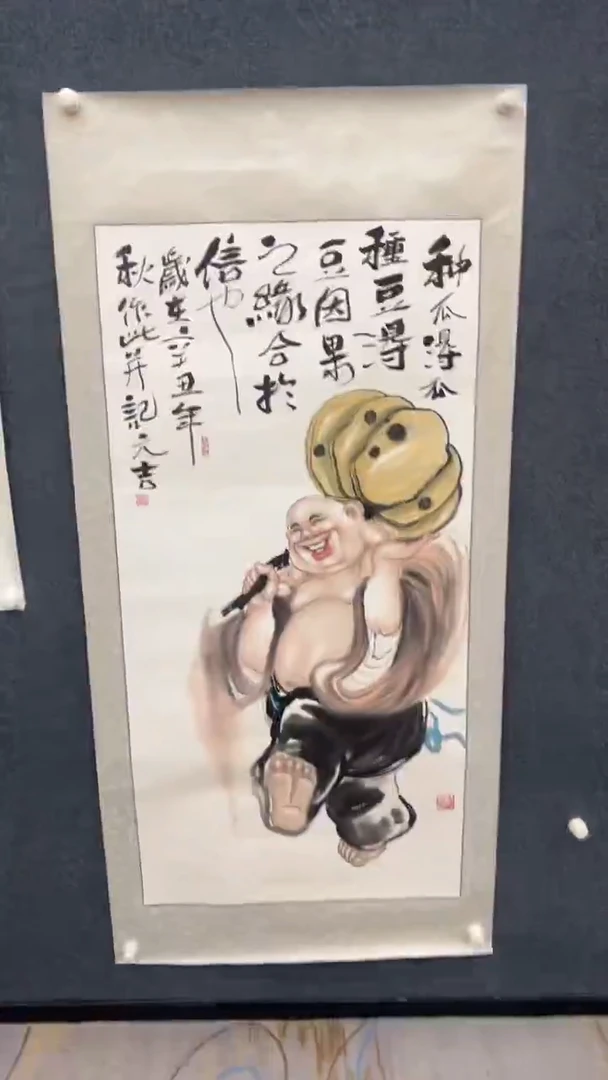 种瓜得瓜
種豆得
豆因果
之緣合於
信也
歲在辛丑年
秋作此并記元吉